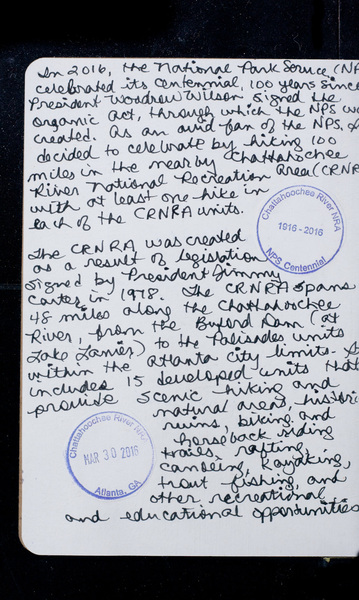 In 2016, the National Park Service (NP
celebrated its centennial, 100 years since
President Woodrow Wilson signed the
organic act, through which the NPS wa
created. As an avid fan of the NPS, I
decided to celebrate by hiking 100
miles in the nearby Chattahoochee
River National Recreation Area (CRNR
with at least one hike in
each of the CRNRA units.
Chattahoochee River NRA
1916 - 2016
NPS Centennial
The CRNRA was created
as a result of legislation
signed by President Jimmy
Carter in 1978. The CRNRA spans
48 miles along the Chattahoochee
River, from the Buford Dam (at
Lake Lanier) to the Palisades units
within the Atlanta city limits.
includes 15 developed units that
provide scenic hiking and
natural areas, historic
ruins, biking and
horseback riding
trails, rafting,
canoeing, kayaking,
trout fishing, and
other recreational
and educational opportunities
Chattahoochee River NRA
MAR 30 2016
Atlanta, GA